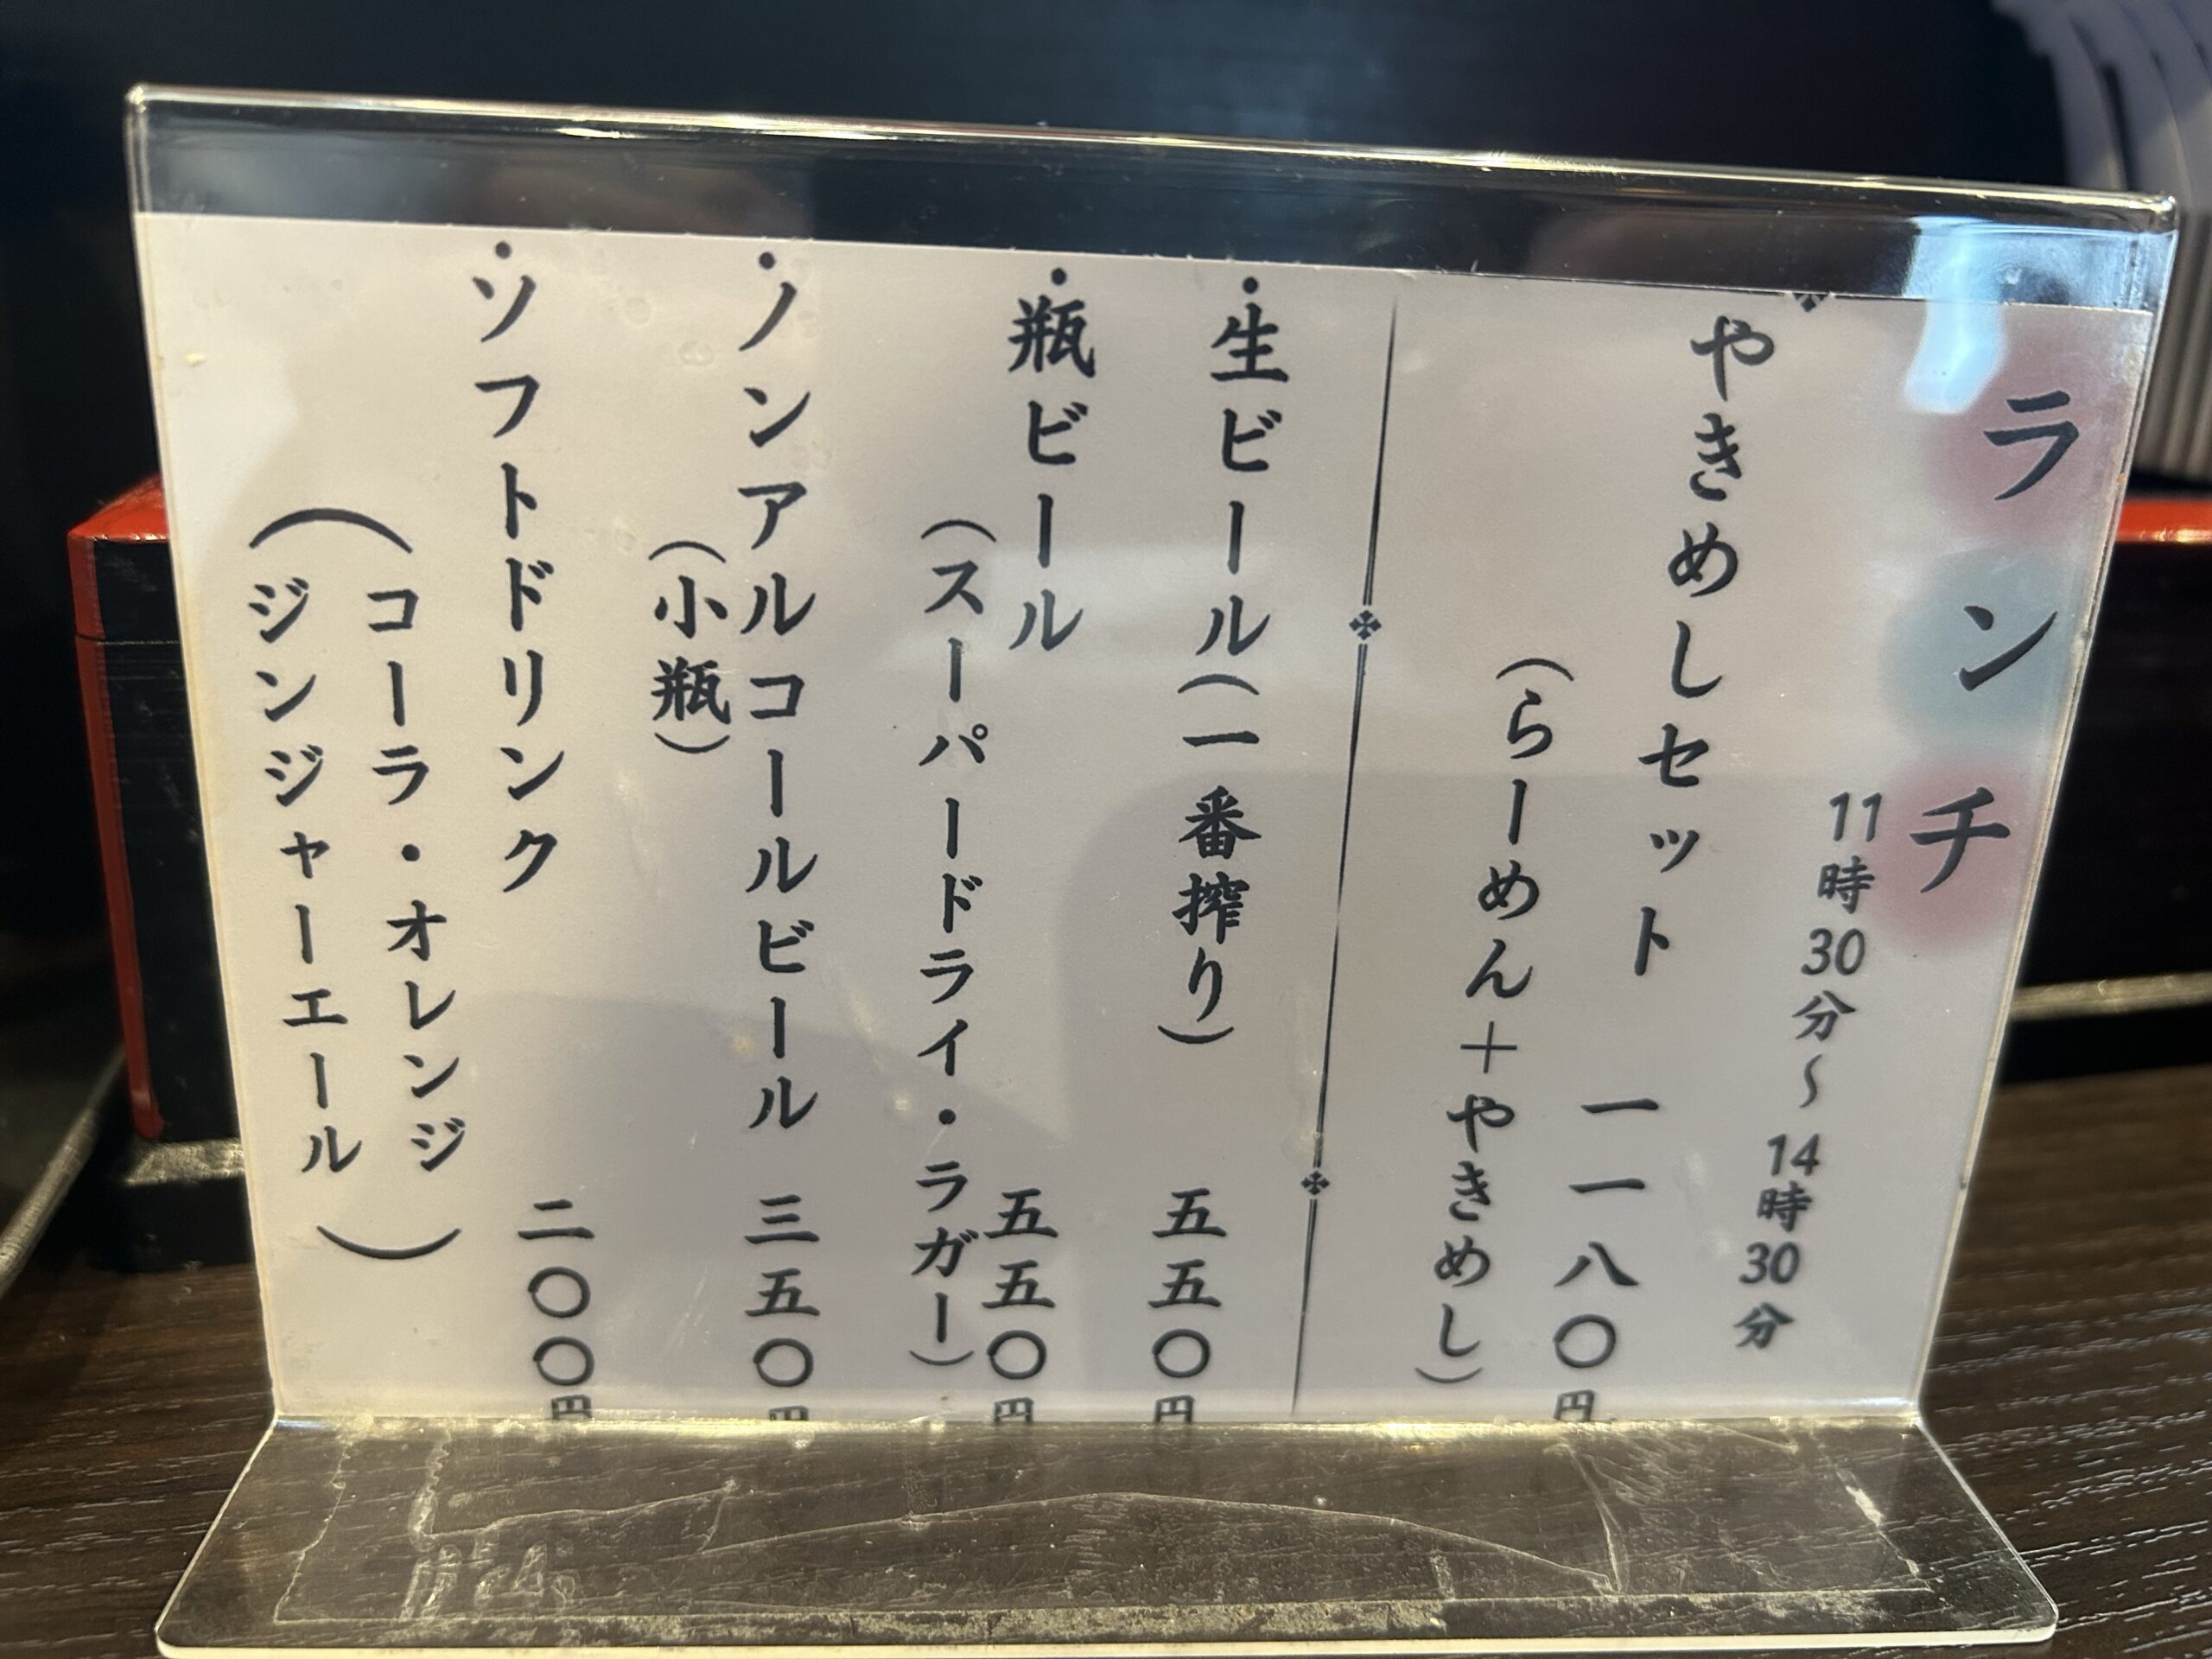 ランチ
11時30分～14時30分
やきめしセット 一一八〇円
（らーめん＋やきめし）
・生ビール（一番搾り） 五五〇円
・瓶ビール 五五〇円
（スーパードライ・ラガー）
・ノンアルコールビール 三五〇円
（小瓶）
・ソフトドリンク 二〇〇円
（コーラ・オレンジ
ジンジャーエール）